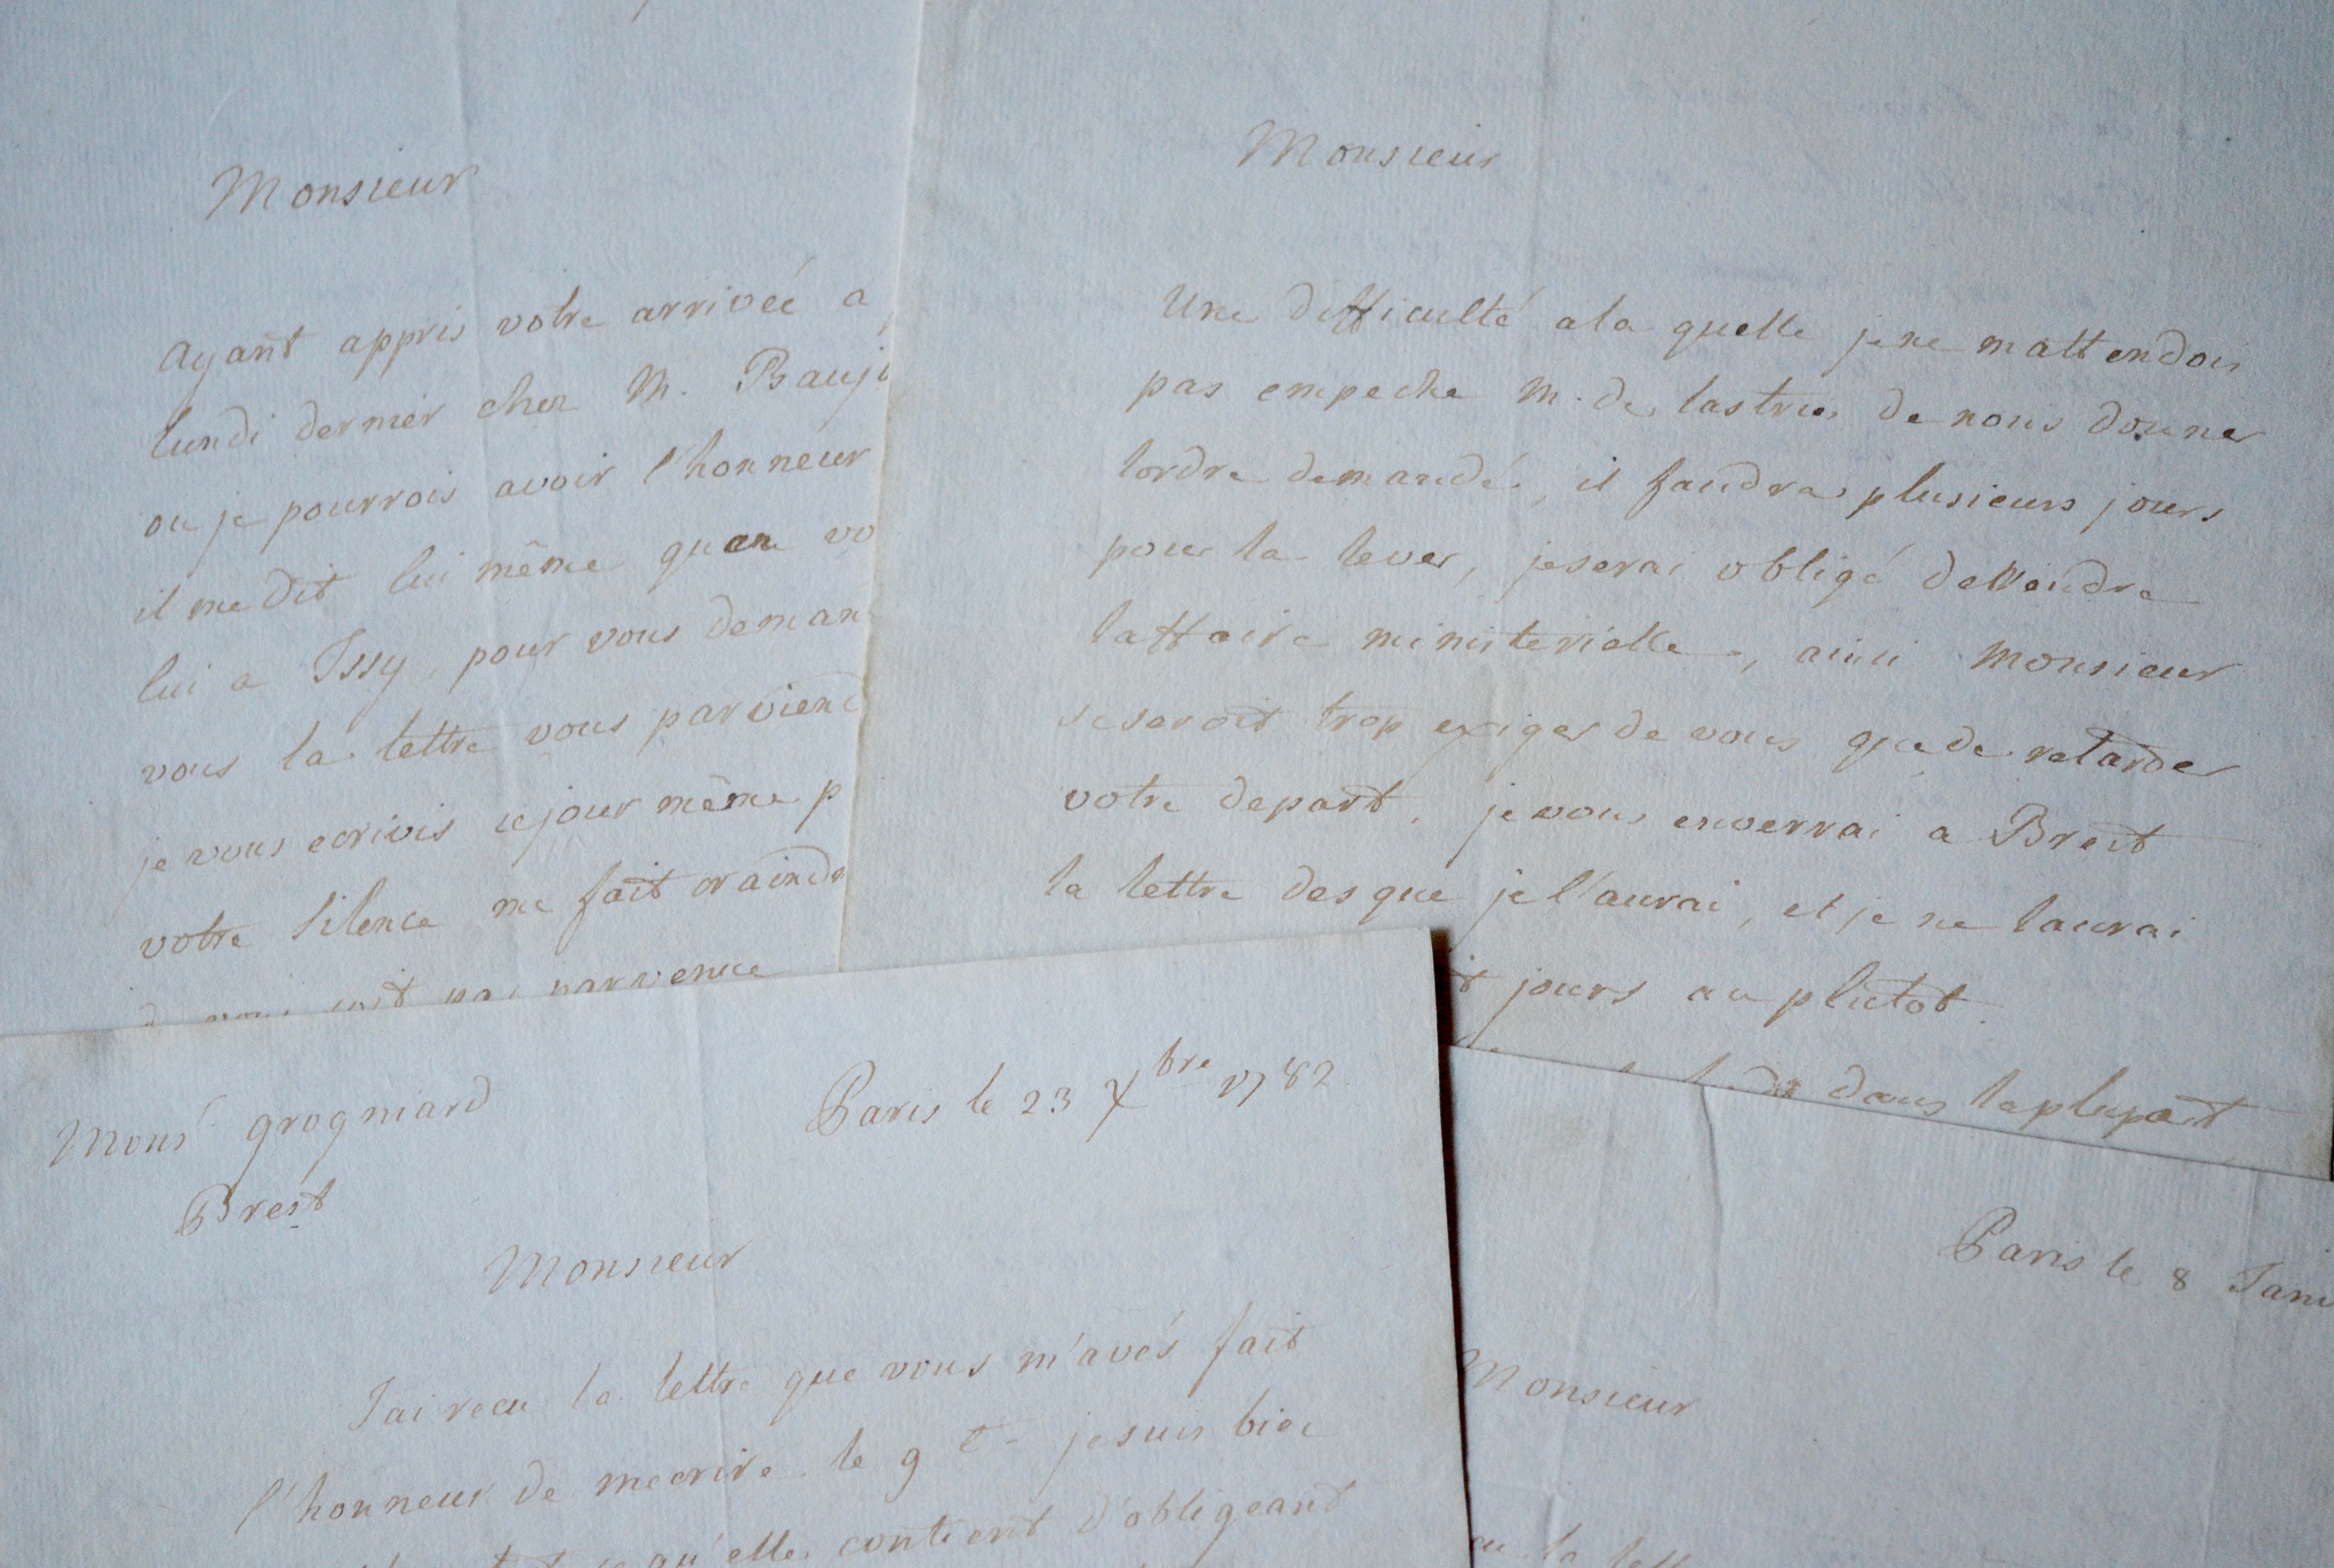 Monsieur
ayant appris votre arrivéé a
lundi dernier chez M. Baujo
ou je pourrois avoir l'honneur
il me dit lui même quen vo
lui a Issy, pour vous deman
vous la lettre vous parviend
je vous ecrivis ce jour même p
votre silence me fait craindr
vous soit pas parvenue
Monsieur
Une difficulté ala quelle je ne mattendois
pas empeche M. de lastrie de nous donner
lordre demandé, il faudra plusieurs jours
pour la lever, jeserai obligé de rendre
laffaire ministerielle, ainsi Monsieur
seseroit trop exiger de vous que de retarder
votre depart, je vous enverrai a Brest
la lettre desque je l'aurai, et je ne laurai
t jours au plutot.
dans laplupart
Monsr grogniard
Brest
Paris le 23 Xbre 1782
Monsieur
Jai recu la lettre que vous m'avés fait
l'honneur de mecrire le 9 je suis bien
qu'elle contient d'obligeant
Paris le 8 Janv
Monsieur
cu la lett